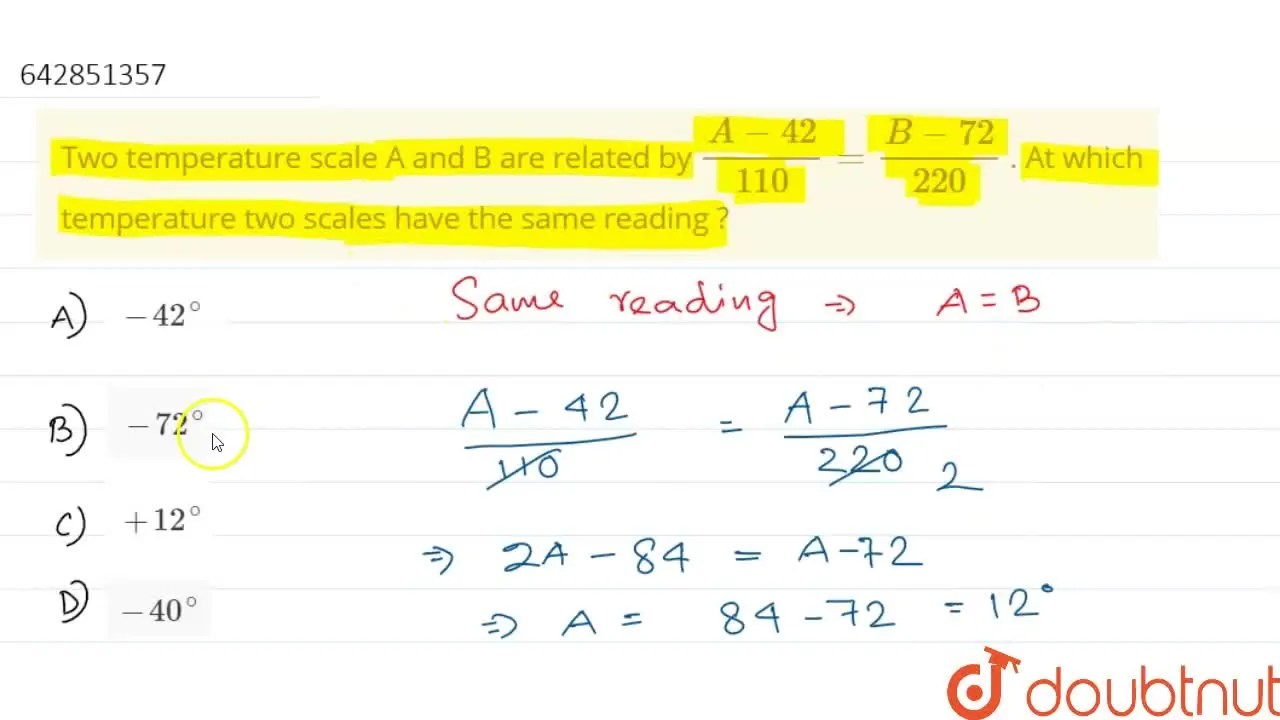 642851357
Two temperature scale A and B are related by \frac{A - 42}{110} = \frac{B - 72}{220} . At which
temperature two scales have the same reading ?
Same reading ⇒ A = B
A) −42°
B) −72°
\frac{A - 42}{110} = \frac{A - 72}{220} 2
C) +12°
⇒ 2A − 84 = A − 72
D) −40°
⇒ A = 84 − 72 = 12°
doubtnut